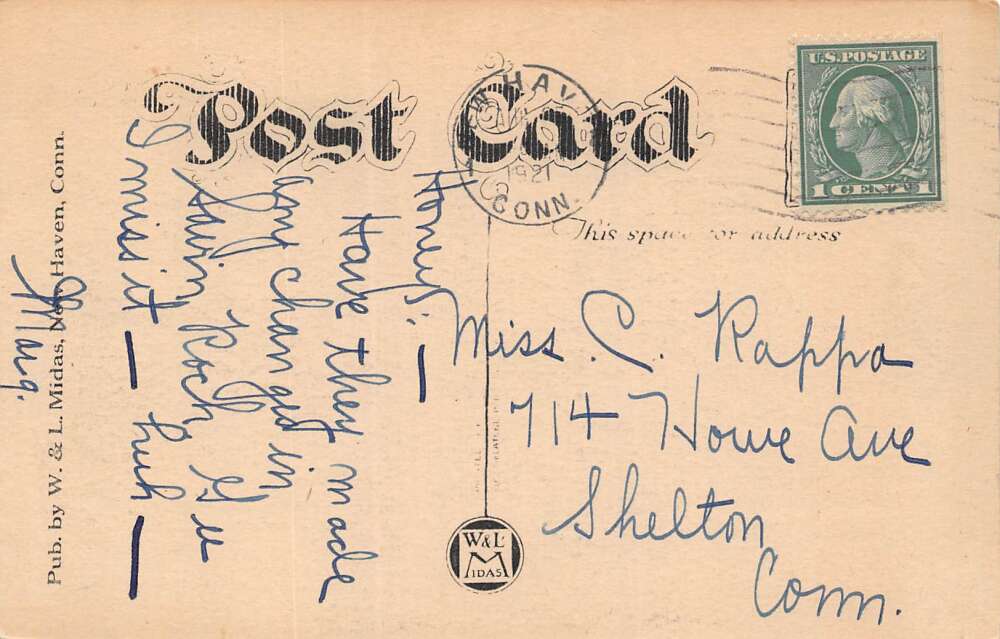 Post Card
NEW HAVEN
1921
CONN.
U.S. POSTAGE
1 CENT 1
This space for address
Honey:—
Have they made
any changes in
Savin Rock? Gee
I miss it — huh —
Mag.
Miss. C. Rappa
714 Howe Ave
Shelton
Conn.
Pub. by W. & L. Midas, New Haven, Conn.
W&L
MIDAS